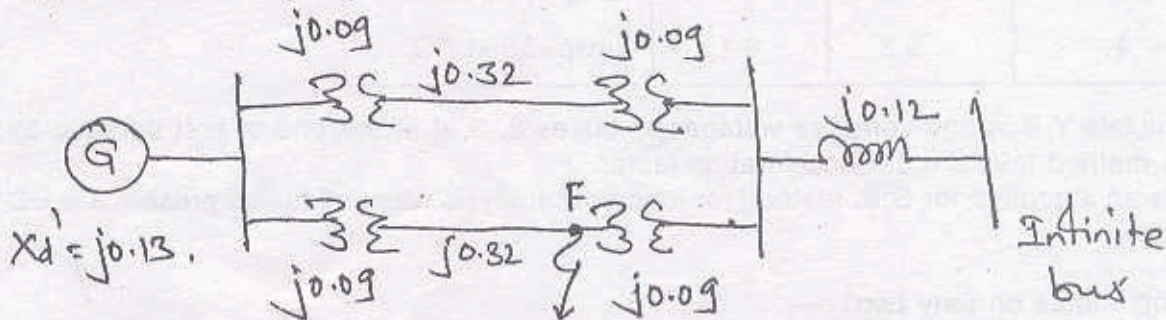 j0.09 j0.09
j0.32
j0.12
G
F
Xd' = j0.13.
j0.32
j0.09 j0.09
Infinite
bus